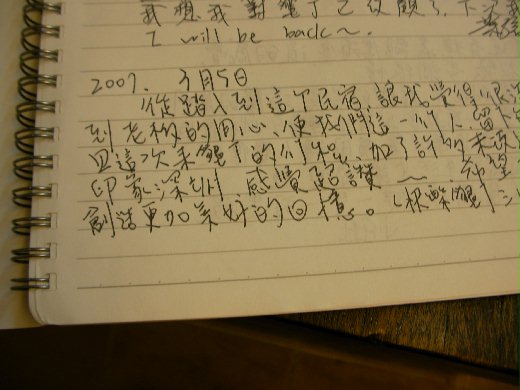 我想我對墾丁已改觀了,下次我
I will be back~.
2007. 3月5日
從踏入到這個民宿,讓我覺得很
到老板的用心,使我們這一行人,留下
且這次來墾丁的行程,加了許多
印象深刻,感覺超讚~ 希望
創造更加美好的回憶。